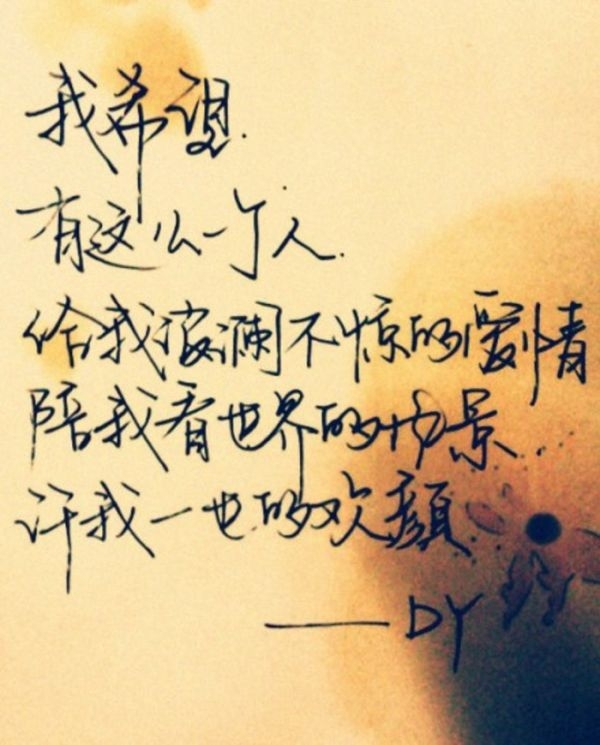 我希望.
有这么一个人.
给我波澜不惊的爱情
陪我看世界的风景...
许我一世的欢颜.
——DY